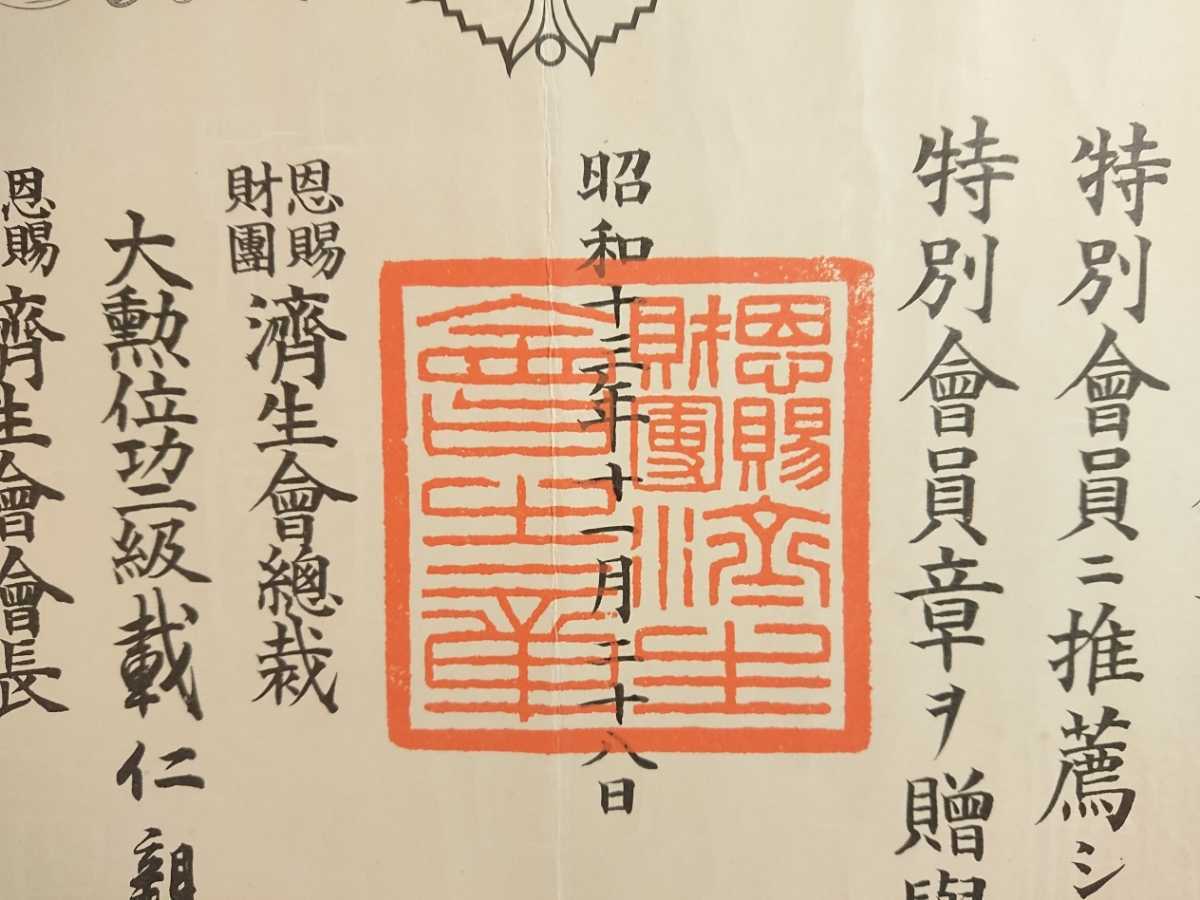 特別會員ニ推薦シ
特別會員章ヲ贈與
昭和十三年十一月二十八日
恩賜
財團
濟生會總裁
大勲位功二級載仁親
恩賜
濟生會會長
恩賜
財團
濟生
會之章